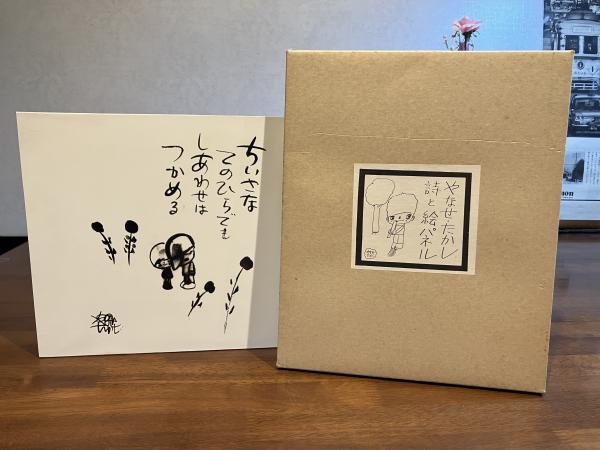 ちいさな
てのひらでも
しあわせは
つかめる
やなせ・たかし
詩と絵パネル